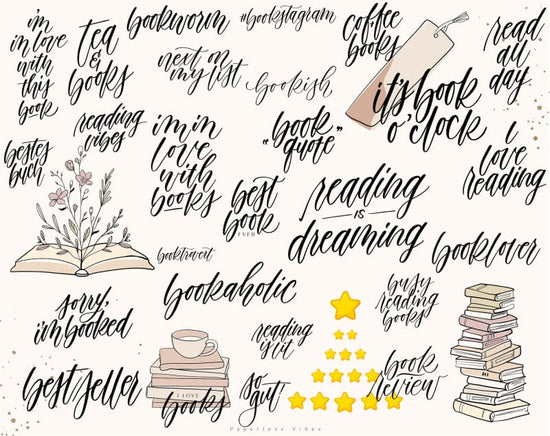 i'm
in love
with
this
book
tea
&
books
bookworm
#bookstagram
coffee
books
read
all
day
next on
my list
bookish
it's book
o'clock
bestes
buch
reading
vibes
i'm in
love
with
books
"book
quote"
i
love
reading
best
book
EVER
reading
IS
dreaming
booklover
bookaholic
sorry,
i'm booked
reading
is lit
busy
reading
books
bestseller
I LOVE
books
so
gut!
book
review
Paperless Vibes